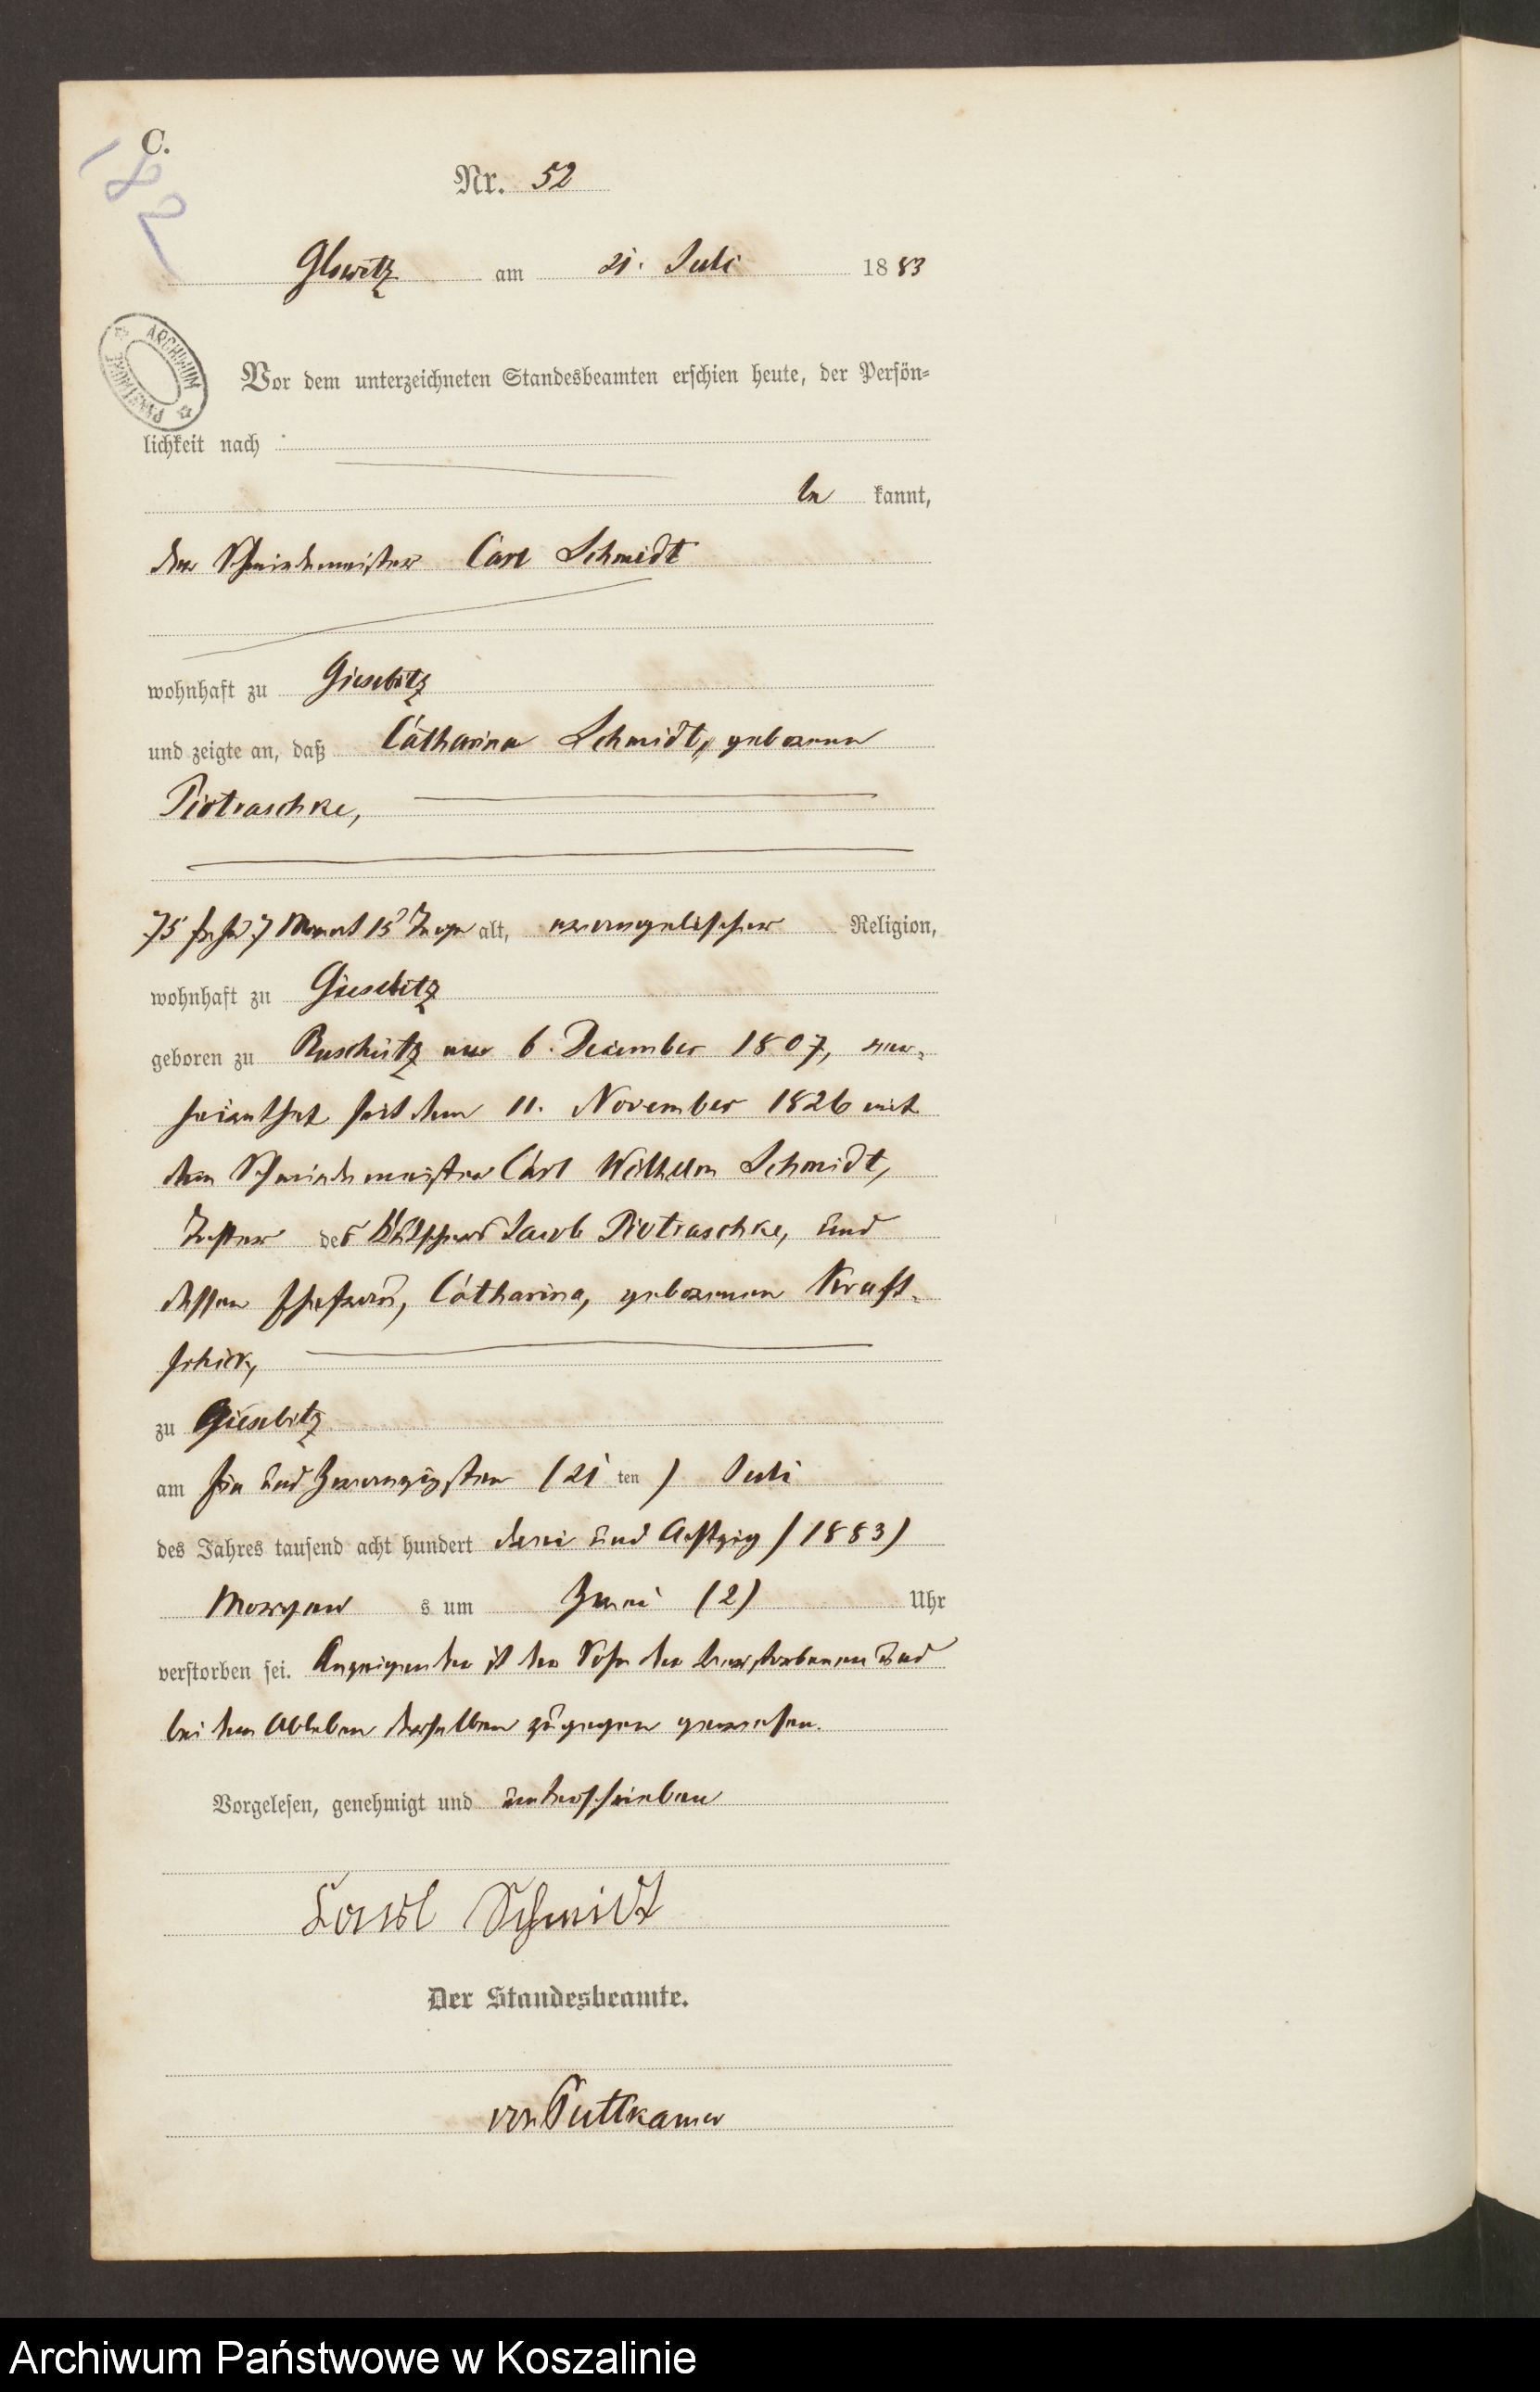 C.
182
Nr. 52
Glowitz am 21. Juli 1883
ARCHIWUM PAŃSTWOWE
Vor dem unterzeichneten Standesbeamten erschien heute, der Persön-
lichkeit nach
be kannt,
der Schmiedemeister Carl Schmidt
wohnhaft zu Giesebitz
und zeigte an, daß Catharina Schmidt, geborene
Piotraschke,
75 Jahr 7 Monat 15 Tage alt, evangelischer Religion,
wohnhaft zu Giesebitz
geboren zu Ruschütz am 6. December 1807, ver-
heirathet seit dem 11. November 1826 mit
dem Schmiedemeister Carl Wilhelm Schmidt,
Tochter des Jacob Piotraschke, und
dessen Ehefrau, Catharina, geborenen Kraft-
schick,
zu Giesebitz
am ein und zwanzigsten (21 ten) Juli
des Jahres tausend acht hundert drei und Achtzig (1883)
Morgen s um Zwei (2) Uhr
verstorben sei. Anzeigender ist der Sohn der Verstorbenen und
bei dem Ableben derselben zugegen gewesen.
Vorgelesen, genehmigt und unterschrieben
Carl Schmidt
Der Standesbeamte.
von Puttkamer
Archiwum Państwowe w Koszalinie